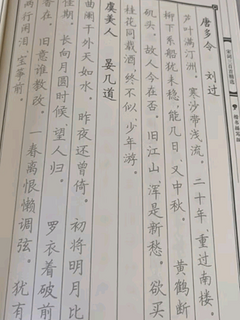 唐多令　刘过
芦叶满汀洲。寒沙带浅流。二十年、重过南楼。
柳下系船犹未稳，能几日、又中秋。　黄鹤断
矶头。故人今在否。旧江山、浑是新愁。欲买
桂花同载酒，终不似、少年游。
虞美人　晏几道
曲阑干外天如水。昨夜还曾倚。　初将明月比
佳期。长向月圆时候、望人归。　罗衣着破前
香在。旧意谁教改。　一春离恨懒调弦。犹有
两行闲泪、宝筝前。